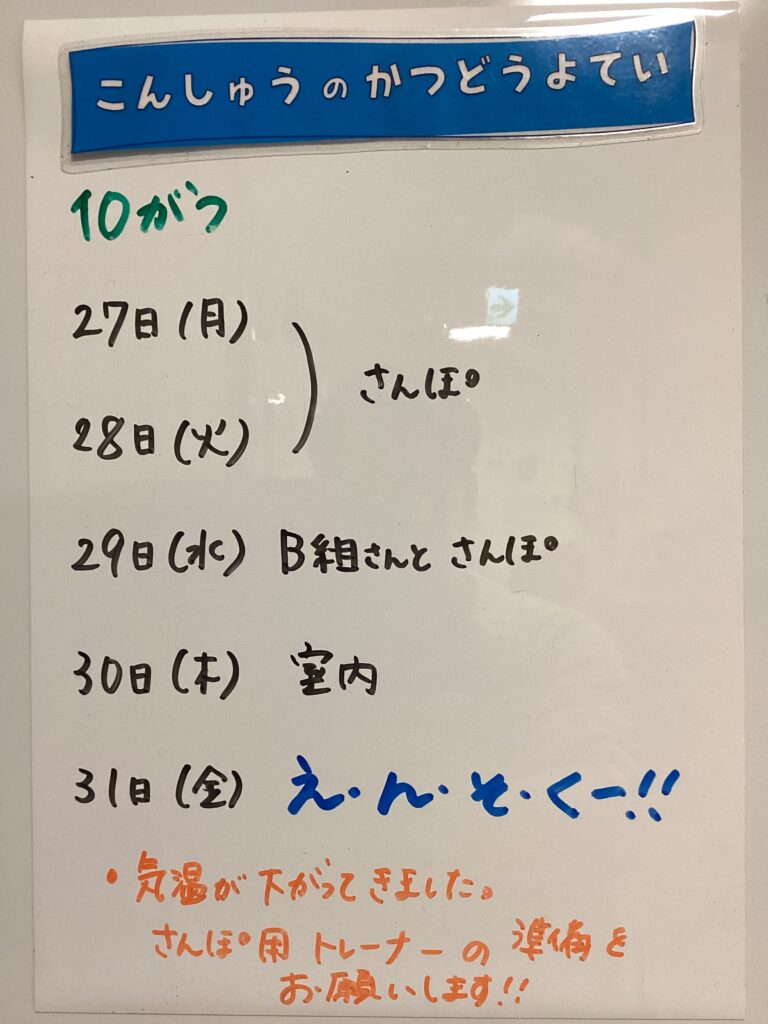 こんしゅうのかつどうよてい
10がつ
27日(月)
28日(火)
さんぽ
29日(水) B組さんと さんぽ
30日(木) 室内
31日(金) え・ん・そ・くー!!
・気温が下がってきました。
さんぽ用トレーナーの準備を
お願いします!!